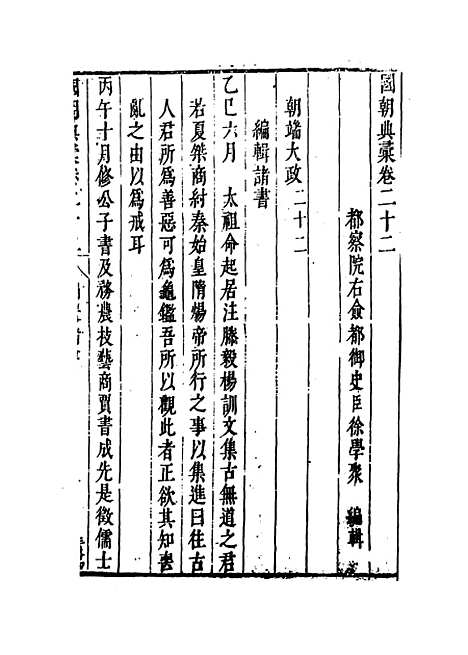 國朝典彙卷二十二
都察院右僉都御史臣徐學聚 編輯
朝端大政二十二
編輯諸書
乙巳六月 太祖命起居注滕毅楊訓文集古無道之君
若夏桀商紂秦始皇隋煬帝所行之事以集進曰往古
人君所爲善惡可爲龜鑑吾所以觀此者正欲其知喪
亂之由以爲戒耳
丙午十月修公子書及務農技藝商賈書成先是徵儒士